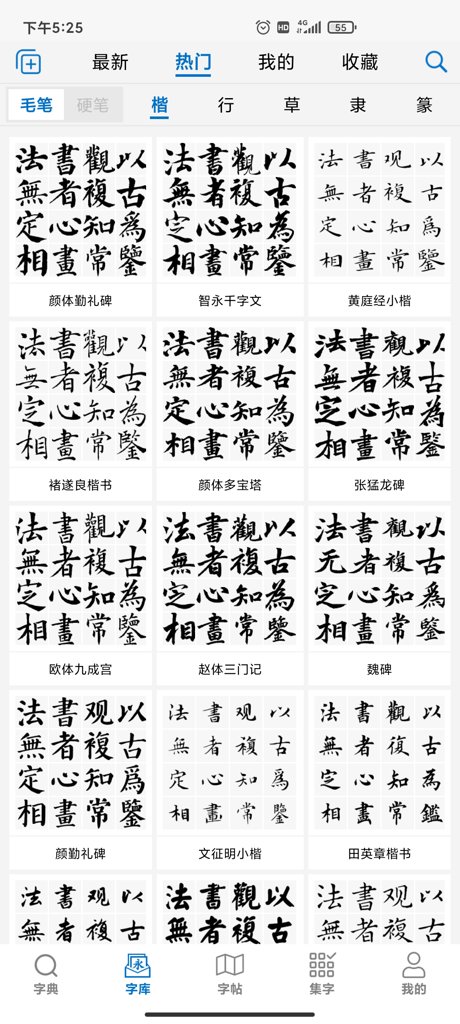 下午5:25
HD 4G 55
最新 热门 我的 收藏
毛笔 硬笔 楷 行 草 隶 篆
法書觀以 法書觀以 法書观以
無者複古 無者複古 無者複古
定心知爲 定心知為 定心知爲
相畫常鑒 相畫常鑒 相畫常鑒
颜体勤礼碑 智永千字文 黄庭经小楷
法書觀以 法書觀以 法書觀以
無者複古 無者複古 無者複古
定心知為 定心知為 定心知為
相畫常鑒 相畫常鑒 相畫常鑒
褚遂良楷书 颜体多宝塔 张猛龙碑
法書觀以 法書觀以 法書觀以
無者複古 無者複古 无者複古
定心知為 定心知為 定心知爲
相畫常鑒 相畫常鑒 相畫常鑒
欧体九成宫 赵体三门记 魏碑
法書观以 法書观以 法書觀以
無者複古 無者複古 無者復古
定心知爲 定心知爲 定心知為
相畫常鑒 相畫常鑒 相畫常鑑
颜勤礼碑 文征明小楷 田英章楷书
法書观以 法書觀以 法書观以
無者複古 無者複古 無者複古
字典 字库 字帖 集字 我的